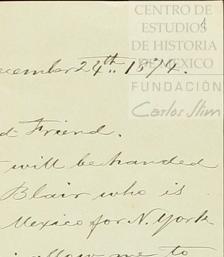 CENTRO DE
ESTUDIOS
DE HISTORIA
DE MÉXICO
FUNDACIÓN
Carlos Slim
1
ecember 24th. 1874.
d Friend.
will be handed
Blair who is
Mexico for N. York
allow me to